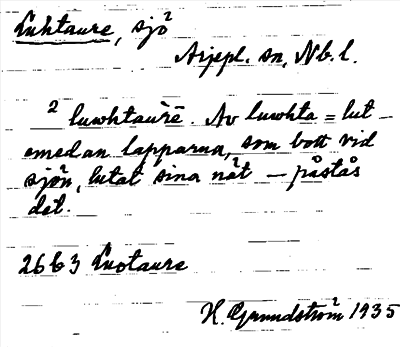 Luhtaure, sjö
Arjepl. sn, Nb. l.
2 luwhtau̇rē. Av luwhta = lut-
emedan lapparna, som bott vid
sjön, lutat sina nät – påstås
det.
2663 Luotaure
H. Grundström 1935